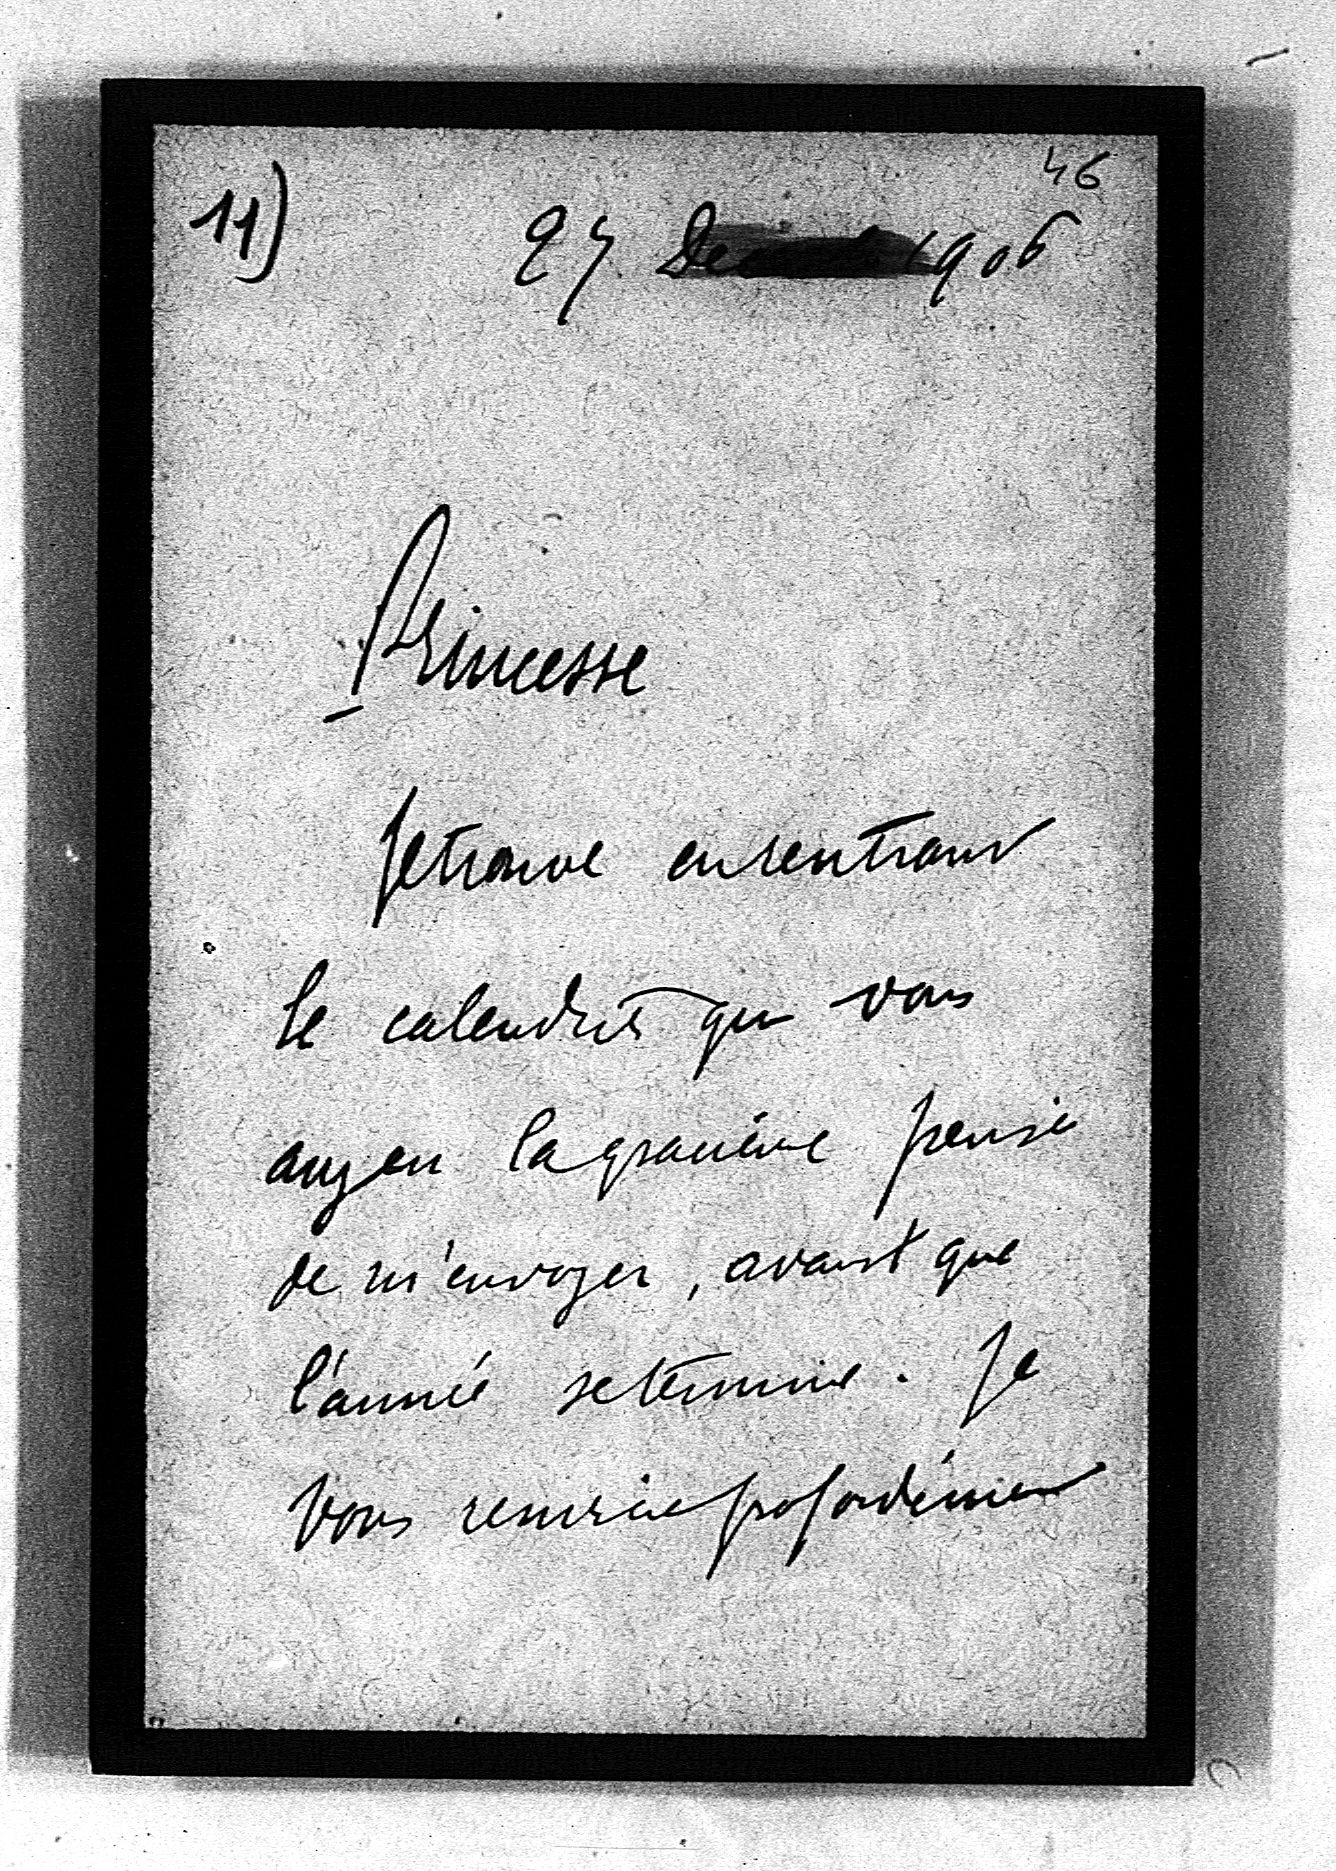 46
11) 27 Décembre 1906
Princesse
Je trouve en rentrant
le calendrier que vous
avez eu la gracieuse pensée
de m'envoyer, avant que
l'année se termine. Je
vous remercie profondément